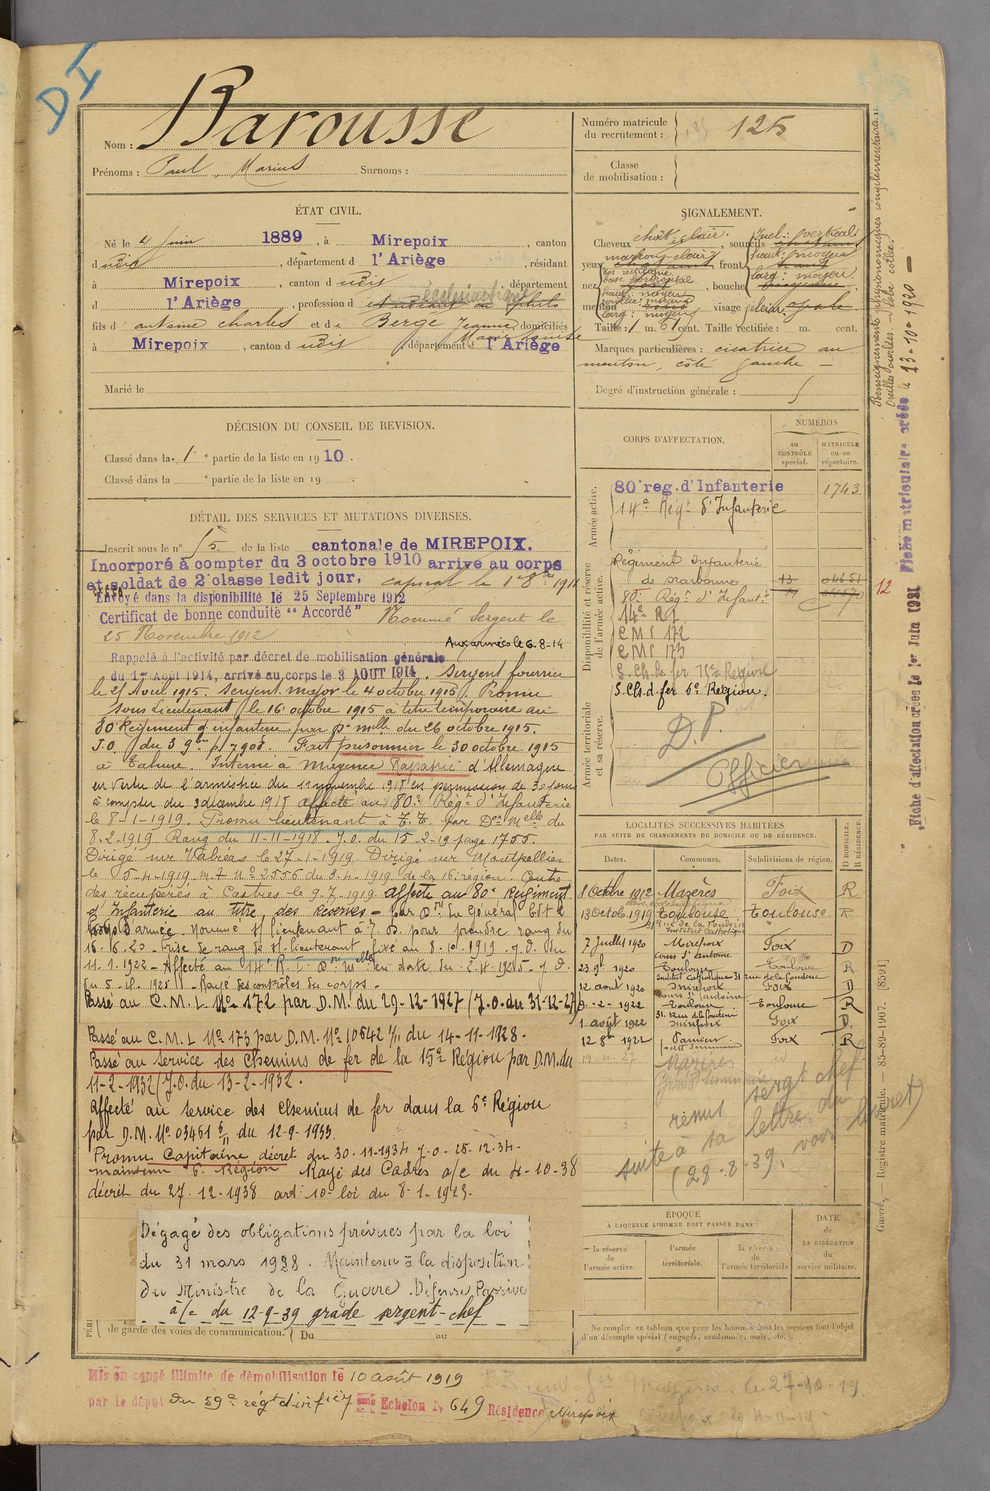 DI
Nom : Barousse
Prénoms : Paul, Marius Surnoms :
Numéro matricule du recrutement : 125
Classe de mobilisation :
ÉTAT CIVIL.
Né le 4 juin 1889, à Mirepoix, canton
dudit, département d l'Ariège, résidant
à Mirepoix, canton d udit, département
d l'Ariège, profession d ecclésiastique
fils d'antoine charles et de Berge Jeanne Marie Louise domiciliés
à Mirepoix, canton d udit, département d l'Ariège
Marié le
DÉCISION DU CONSEIL DE REVISION.
Classé dans la 1e partie de la liste en 1910.
Classé dans la e partie de la liste en 19 .
DÉTAIL DES SERVICES ET MUTATIONS DIVERSES.
Inscrit sous le n° 15 de la liste cantonale de MIREPOIX.
Incorporé à compter du 3 octobre 1910 arrivé au corps
et soldat de 2e classe ledit jour, caporal le 1er 8bre 1911
Envoyé dans la disponibilité le 25 Septembre 1912
Certificat de bonne conduite "Accordé" Nommé Sergent le
25 Novembre 1912
Aux armées le 6-8-14
Rappelé à l'activité par décret de mobilisation générale
du 1er Août 1914, arrivé au corps le 3 AOUT 1914. Sergent fourrier
le 21 Aout 1915. Sergent major le 4 octobre 1915. Promu
Sous Lieutenant le 16 octobre 1915 à titre temporaire au
80 Régiment d'infanterie par Don mlle du 26 octobre 1915.
J.O. du 3 9bre p. 7908. Fait prisonnier le 30 octobre 1915
à Tahure. Interné à Mayence Rapatrié d'Allemagne
en vertu de l'armistice du 11 novembre 1918 en permission de 30 jours
à compter du 3 décembre 1918 affecté au 80e Régt d'Infanterie
le 8-1-1919. Promu lieutenant à T.T. par Don Melle du
8-2-1919 Rang du 11-11-1918. J.O. du 15-2-19 page 1755.
Dirigé sur Valréas le 27-1-1919. Dirigé sur Montpellier
le 5-4-1919. n.t n° 2556 du 3-4-1919 de la 16e région. Centre
des récupérés à Castres le 9-7-1919. Affecté au 80e Régiment
d'Infanterie au titre des Réserves - par Don du Général Cdt le
Corps d'armée. Nommé lieutenant à T.D. pour prendre rang du
16-6-20 - Prise de rang de lieutenant fixé au 8-10-1919. J.O. du
11-1-1922 - Affecté au 14e R.I. Don mlle en date du 2-4-1925 - J.O.
du 5-4-1925. - Rayé des contrôles du corps -
Passé au C.M.I. N° 172 par D.M. du 29-12-1927 (J.O. du 31-12-27)
Passé au C.M.I. N° 173 par D.M. N° 10642 1/11 du 14-11-1928.
Passé au service des Chemins de fer de la 15e Région par D.M. du
11-2-1932 (J.O. du 13-2-1932.
Affecté au service des Chemins de fer dans la 6e Région
par D.M. N° 03461 6/11 du 12-9-1933.
Promu Capitaine décret du 30-11-1934 J.O. 25.12.34.
maintenu 6e Région Rayé des Cadres a/c du 4-10-38
décrit du 27.12.1938 art. 10 loi du 8-1-1925.
Dégagé des obligations prévues par la loi
du 31 mars 1928. Maintenu à la disposition
du Ministre de la Guerre. Défense Passive
à/c du 12-9-39 grade sergent-chef
de garde des voies de communication. Du au
Mis en congé illimité de démobilisation le 10 août 1919
par le dépôt du 59e régt d'infie Echelon N° 649 Résidence Mirepoix
SIGNALEMENT.
Cheveux chât. clair. sourcils
yeux marron clair front
nez bouche
menton visage plein
Taille : 1 m. 61 cent. Taille rectifiée : m. cent.
Marques particulières : cicatrice au
menton, côté gauche -
Degré d'instruction générale :
CORPS D'AFFECTATION.
NUMÉROS
AU CONTRÔLE spécial.
MATRICULE ou au répertoire.
Armée active.
80e reg. d'Infanterie 1743
14e Régt d'Infanterie
Disponibilité et réserve de l'armée active.
Régiment Infanterie
de Narbonne
80e Régt d'Infant.
14e R.I.
CMI 172
CMI 173
S. Ch. de fer 15e Région
S. Ch. d. fer 6e Région.
Armée territoriale et sa réserve.
D.P.
Officier
12
LOCALITÉS SUCCESSIVES HABITÉES
PAR SUITE DE CHANGEMENTS DE DOMICILE OU DE RÉSIDENCE.
Dates. Communes. Subdivisions de région. D DOMICILE. R RÉSIDENCE.
1 Octbre 1912 Mazères Foix R
13 Octob 1919 Toulouse Toulouse R
Institut Catholique
7 Juillet 1920 Mirepoix Foix D
cours St Antoine
23 9bre 1920 Toulouse Toulouse R
Institut Catholique 31 rue de la fonderie
12 août 1921 Mirepoix Foix D
9-2-1922 Toulouse Toulouse R
31. Rue de la fonderie
1. août 1922 Mirepoix Foix D.
12 8bre 1922 Pamiers Foix R
petit séminaire
19-11-27 Mazères id R
remis sergt chef
suite à sa lettre du
(28-8-39, voir livret)
ÉPOQUE
À LAQUELLE L'HOMME DOIT PASSER DANS :
la réserve de l'armée active.
l'armée territoriale.
la réserve de l'armée territoriale
DATE de LA LIBÉRATION du service militaire.
Ne remplir ce tableau que pour les hommes dont les services font l'objet
d'un décompte spécial (engagés, condamnés, omis, etc.).
Renseignements physionomiques complémentaires :
Oreilles ourlées - lobe collé.
Fiche d'affectation créée le 1er Juin 1921 Fiche matriculaire créée le 13-10-1920 -
Guerre. Registre matricule. — 85-89-1907. [8591]